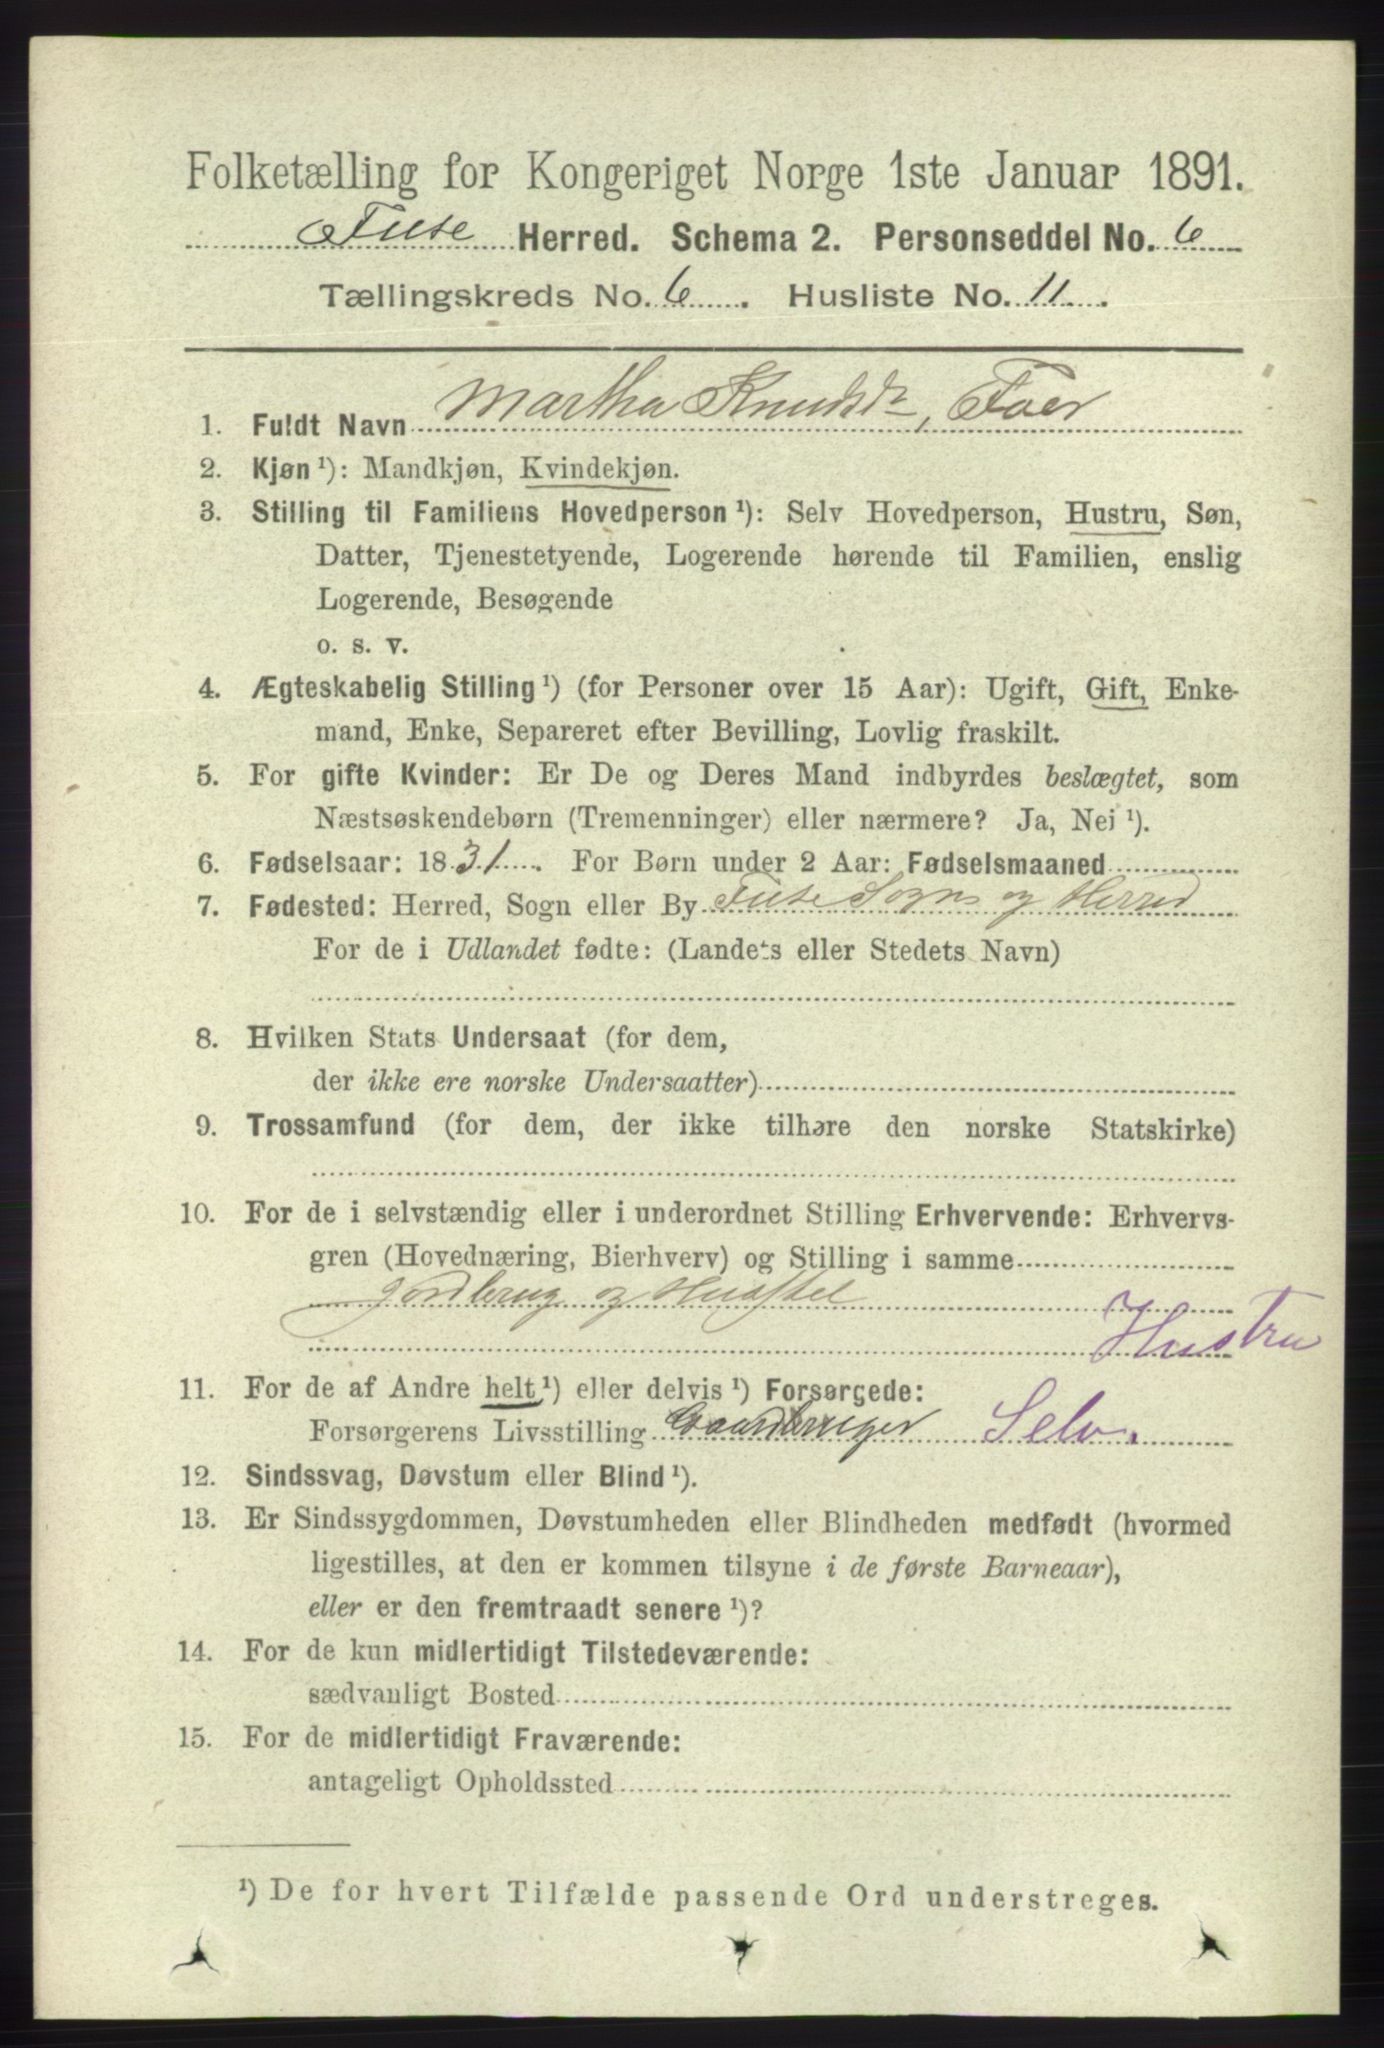 Folketælling for Kongeriget Norge 1ste Januar 1891.
Fuse Herred. Schema 2. Personseddel No. 6
Tællingskreds No. 6. Husliste No. 11.
1. Fuldt Navn Martha Knudsdr, Foer
2. Kjøn ¹): Mandkjøn, Kvindekjøn.
3. Stilling til Familiens Hovedperson ¹): Selv Hovedperson, Hustru, Søn,
Datter, Tjenestetyende, Logerende hørende til Familien, enslig
Logerende, Besøgende
o. s. v.
4. Ægteskabelig Stilling ¹) (for Personer over 15 Aar): Ugift, Gift, Enke-
mand, Enke, Separeret efter Bevilling, Lovlig fraskilt.
5. For gifte Kvinder: Er De og Deres Mand indbyrdes beslægtet, som
Næstsøskendebørn (Tremenninger) eller nærmere? Ja, Nei ¹).
6. Fødselsaar: 1831. For Børn under 2 Aar: Fødselsmaaned
7. Fødested: Herred, Sogn eller By Fuse Sogn og Herred
For de i Udlandet fødte: (Landets eller Stedets Navn)
8. Hvilken Stats Undersaat (for dem,
der ikke ere norske Undersaatter)
9. Trossamfund (for dem, der ikke tilhøre den norske Statskirke)
10. For de i selvstændig eller i underordnet Stilling Erhvervende: Erhvervs-
gren (Hovednæring, Bierhverv) og Stilling i samme
Jordbrug og Husstel
Hustru
11. For de af Andre helt ¹) eller delvis ¹) Forsørgede:
Forsørgerens Livsstilling Gaardbruger Selv.
12. Sindssvag, Døvstum eller Blind ¹).
13. Er Sindssygdommen, Døvstumheden eller Blindheden medfødt (hvormed
ligestilles, at den er kommen tilsyne i de første Barneaar),
eller er den fremtraadt senere ¹)?
14. For de kun midlertidigt Tilstedeværende:
sædvanligt Bosted
15. For de midlertidigt Fraværende:
antageligt Opholdssted
¹) De for hvert Tilfælde passende Ord understreges.